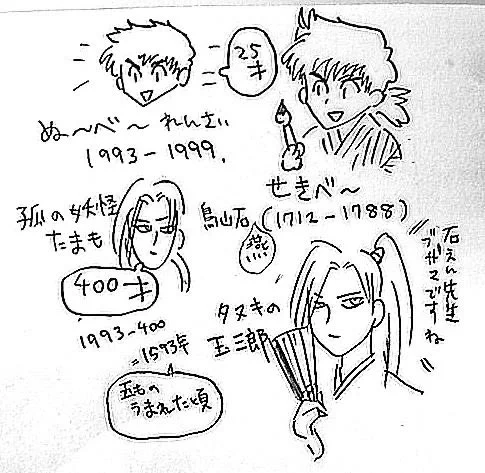 25才
ぬ～べ～れんさい
1993－1999.
せきべ～
鳥山石燕(1712－1788)
狐の妖怪
たまも
400才
1993－400
=1593年
五もの
うまれた頃
タヌキの
玉三郎
石えん先生
ブザマですね